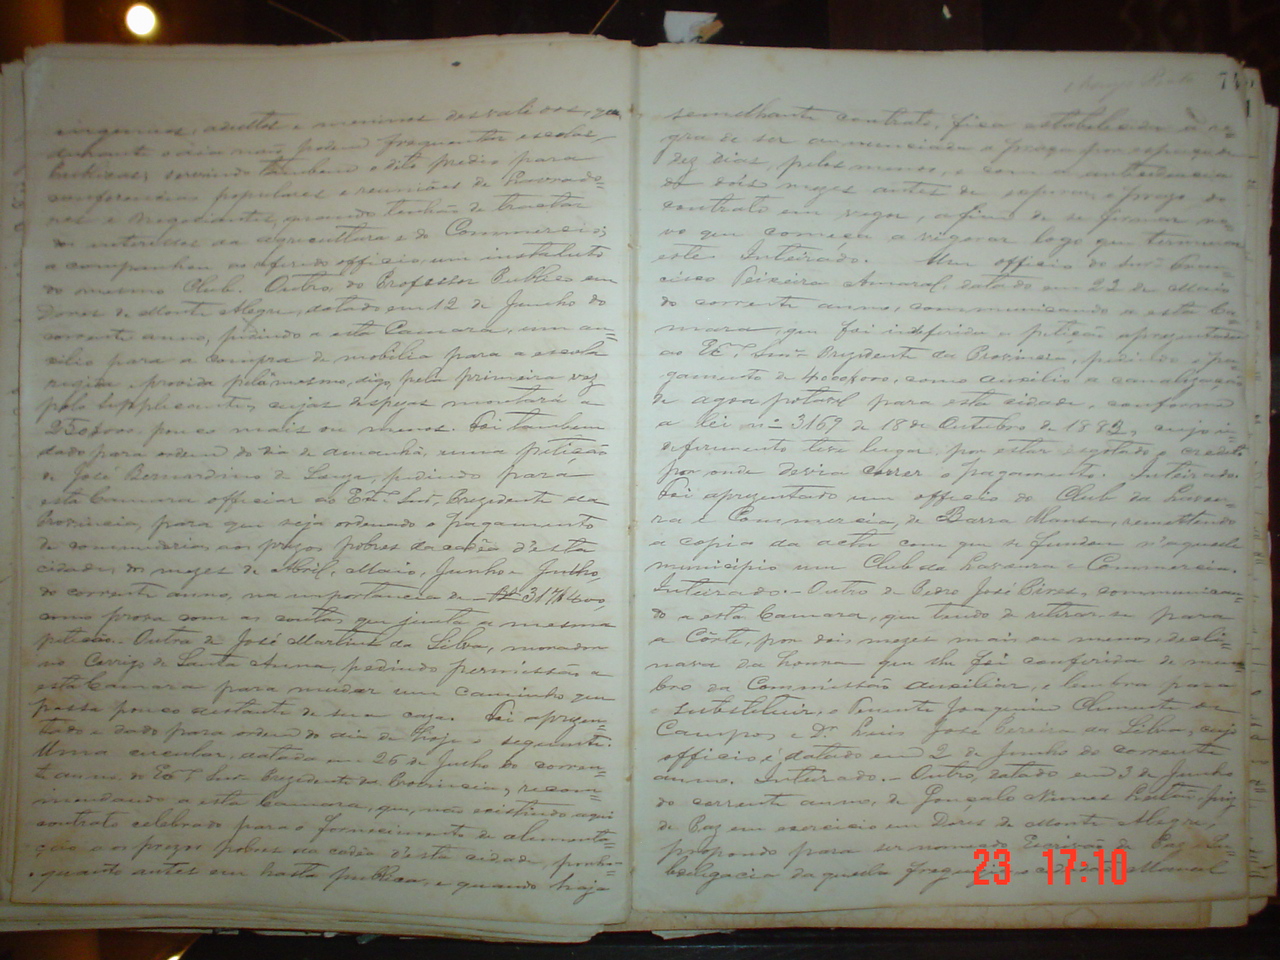 ingenuos, adultos e meninos desvalidos, que
durante o dia não podem frequentar escolas
publicas; servindo tambem o dito predio para
conferencias populares e reuniões de Lavrado=
res e Negociantes, quando tenhão de tractar
dos interesses da Agricultura e do Commercio;
acompanhou ao referido officio, um instituto
do mesmo Club. Outro, do Professor Publico em
Dores de Monte Alegre, datado em 12 de Junho do
corrente anno, pedindo a esta Camara, um au=
xilio para a compra de mobilia para a escola
regida e provida pelo mesmo, digo, pela primeira vez
pelo Supplicante, cujas despezas montará a
250$000 pouco mais ou menos. Foi tambem
dado para ordem do dia de amanhã, uma petição
de José Bernardino de Souza, pedindo para
esta Camara officiar ao Exmo. Snr. Prezidente da
Provincia, para que seja ordenado o pagamento
de comedorias aos prezos pobres da cadêa d'esta
cidade, dos mezes de Abril, Maio, Junho e Julho
do corrente anno, na importancia de 317$400,
como prova com as contas que junta a mesma
petição. Outra de José Martins da Silva, morador
no Corrego de Santa Anna, pedindo permissão a
esta Camara para mudar um caminho que
passa pouco distante de sua caza. Foi aprezen=
tado e dado para ordem do dia de hoje o seguinte:
Uma circular, datada em 26 de Julho do corren=
te anno, do Exmo. Snr. Prezidente da Provincia, recom=
mendando a esta Camara, que, não existindo aqui
contrato celebrado para o fornecimento de alimenta=
ção aos prezos pobres da cadêa d'esta cidade, ponha=
quanto antes em hasta publica, e quando haja
74
semelhante contrato, fica estabelecida a re=
gra de ser annunciada a praça por espaço de
dez dias, pelo menos, e com a antecedencia
de dois mezes antes de expirar o prazo do
contrato em vigor, afim de se firmar no=
vo que começa a vigorar logo que termina
este. Inteirado. Um officio do Snr. Fran=
cisco Teixeira Amaral, datado em 22 de Maio
do corrente anno, communicando a esta Ca=
mara, que foi indeferida a petição aprezentada
ao Exmo. Snr. Prezidente da Provincia, pedindo o pa=
gamento de 4000$000, como auxilio a canalização
de agoa potavel para esta cidade, conforme
a lei nº 3169 de 18 de Outubro de 1882, cujo in=
deferimento teve lugar, por estar esgotado o credito
por onde devia correr o pagamento. Inteirado.
Foi apresentado um officio do Club da Lavou=
ra e Commercio, de Barra Mansa, remettendo
a copia da acta com que se fundou n'aquele
municipio um Club da Lavoura e Commercio.
Inteirado. - Outro de Pedro José Pires, communican=
do a esta Camara, que tendo de retirar-se para
a Côrte, por dois mezes mais ou menos, decli=
nava da honra que lhe foi conferida de mem=
bro da Commissão auxiliar, e lembra para
o substituir, o Tenente Joaquim Clemente de
Campos e Dr. Luis José Pereira da Silva, cujo
officio é datado em 2 de Junho do corrente
anno. Inteirado. - Outro, datado em 3 de Junho
do corrente anno, de Gonçalo Nunes Leitão, Juiz
de Paz em exercicio em Dores de Monte Alegre,
propondo para ser nomeado Escrivão de Paz e Su=
bdelegacia daquela freguezia o cidadão Manoel
23 17:10